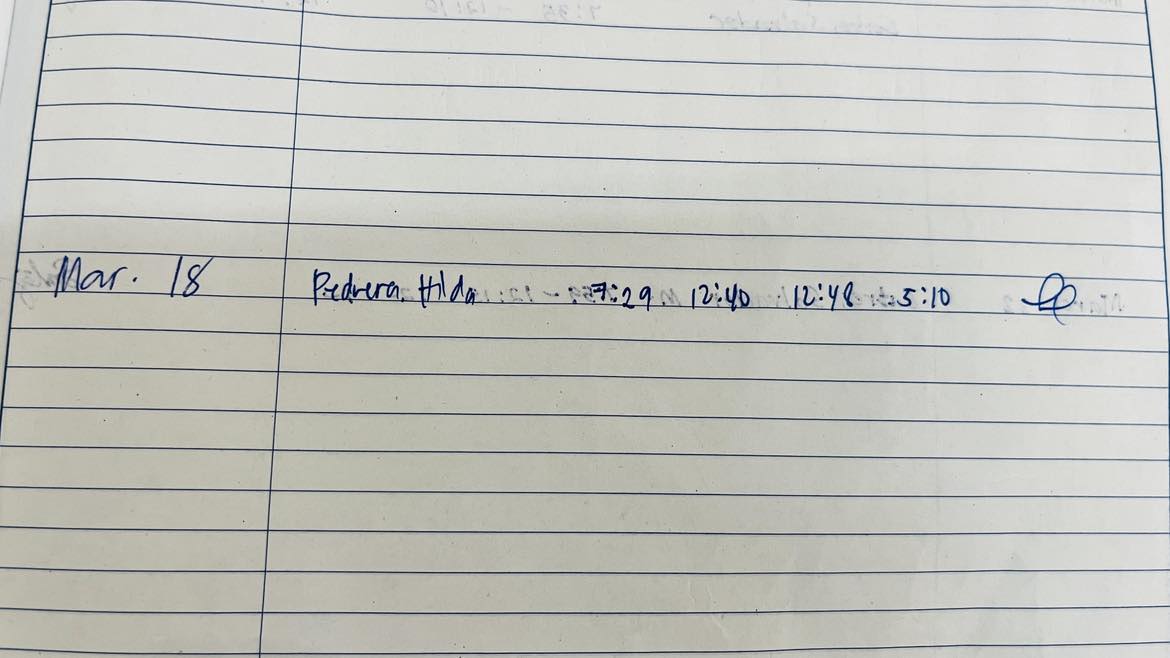 Mar. 18 Pedrera, Hilda 7:29 12:40 12:48 5:10